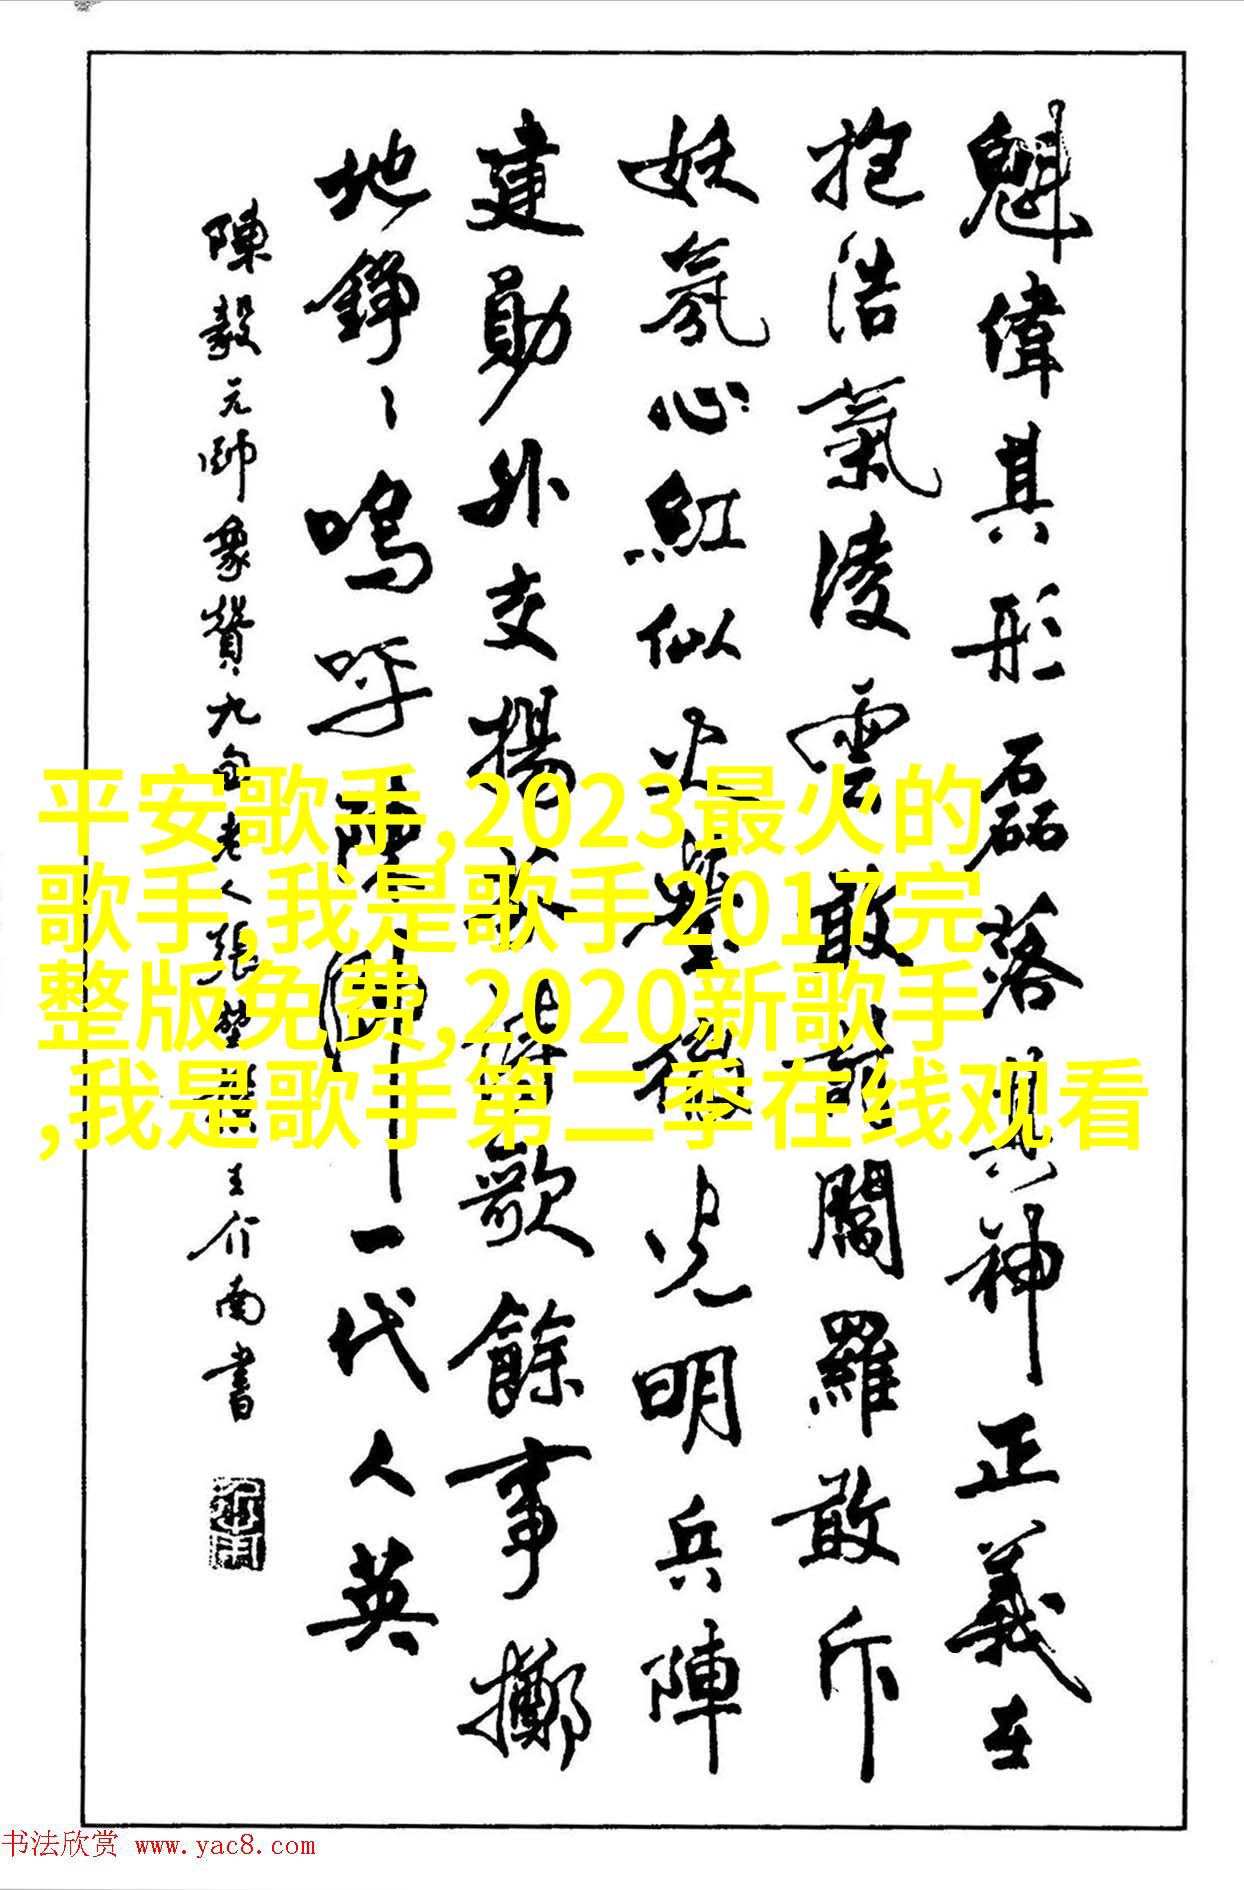 魁偉其形磊落其神正義在
抱浩氣凌雲敢前闖羅敢斥
妖氛心紅似火鬢後光明兵陣
建勛外交揚於詩歌餘事擲
地錚々嗚呼陳帥一代人英
陳毅元帥象贊九老人張王介南書
平安歌手,2023最火的
歌手,我是歌手2017完
整版免费,2020新歌手
,我是歌手第二季在线观看
书法欣赏 www.yac8.com